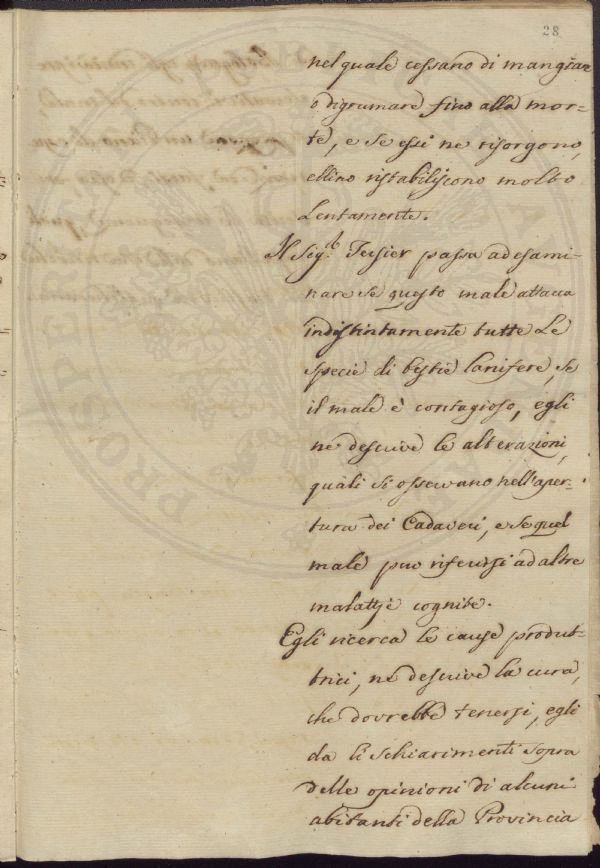 28
nel quale cessano di mangiare
o digrumare fino alla mor-
te, e se essi ne risorgono,
ellino ristabiliscono molto
Lentamente.
Il Sig.r Tessier passa ad esami-
nare se questo male attacca
indistintamente tutte le
specie di bestie lanifere, se
il male è contagioso, egli
ne descrive le alterazioni,
quali si osservano nell'aper-
tura dei Cadaveri, e se quel
male puo riferirsi ad altre
malattje cognite.
Egli ricerca le cause produt-
trici, ne descrive la cura,
che dovrebbe tenersi, egli
da li schiarimenti sopra
delle opinioni di alcuni
abitanti della Provincia